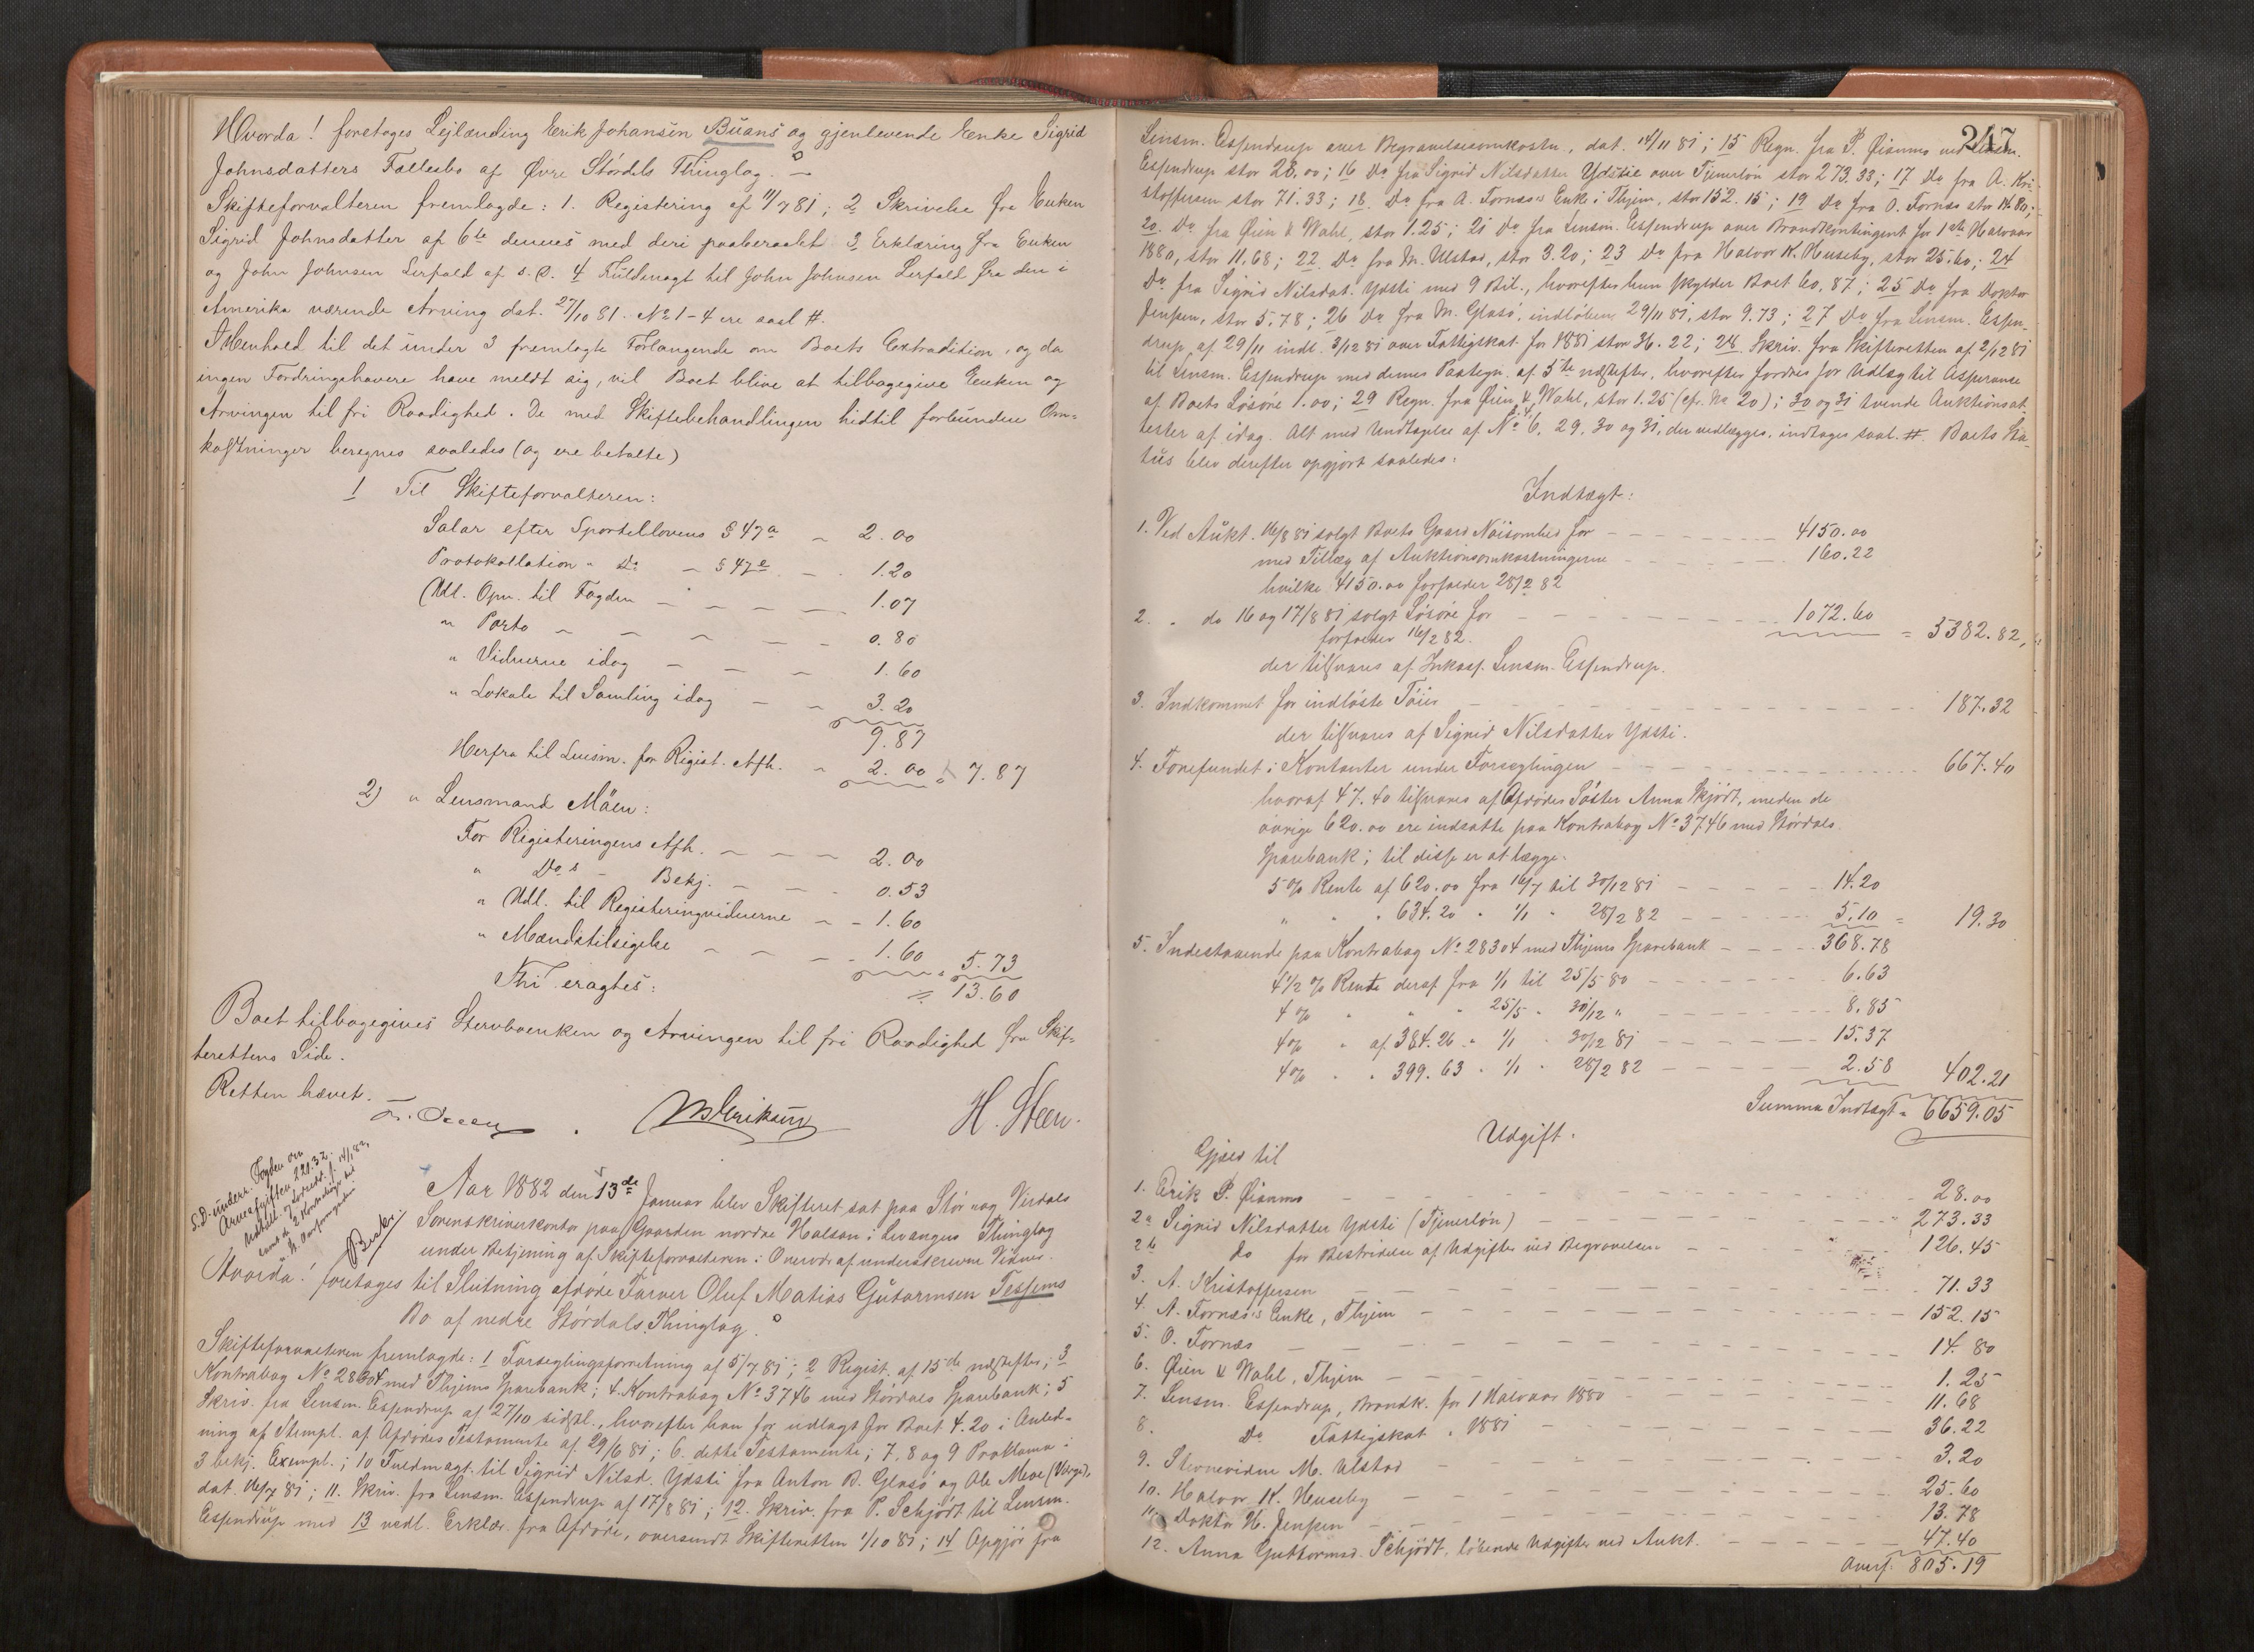 Hvorda! foretoges Lejlænding Erik Johansen Buans og gjenlevende Enke Sigrid
Johnsdatters Fællesbo af Øvre Stördals Thinglag.
Skifteforvalteren fremlagde: 1. Registering af 11/7 81; 2 Skrivelse fra Enken
Sigrid Johnsdatter af 6te dennes med deri paaberaabt 3 Erklæring fra Enken
og John Johnsen Lerfald af s. D. 4 Fuldmagt til John Johnsen Lerfald fra den i
Amerika værende Arving dat. 27/10 81. No 1-4 ere saal #.
I Henhold til det under 3 fremlagte Forlangende om Boets Extradition, og da
ingen Fordringshavere have meldt sig, vil Boet blive at tilbagegive Enken og
Arvingen til fri Raadighed. De med Skiftebehandlingen hidtil forbundne Om-
kostninger beregnes saaledes (og ere betalte)
1 Til Skifteforvalteren:
Salar efter Sportellovens § 47a - 2.00
Protokollation " Do - § 47e - 1.20
Udl. Opn. til Fogden - 1.07
" Porto - 0.80
" Vidnerne idag - 1.60
" Lokale til Samling idag - 3.20
9.87
Herfra til Lensm. for Regist. Afh. - 2.00 = 7.87
2) " Lensmand Mæen:
For Registeringens Afh. - 2.00
" Do s - Bekj. - 0.53
" Udl. til Registeringvidnerne - 1.60
" Mændstilsigelse - 1.60 = 5.73
= 13.60
Thi eragtes:
Boet tilbagegives Stervboenken og Arvingen til fri Raadighed fra Skif-
terettens Side.
Retten hævet.
H. Steen.
S.D. underr. Fogden om
Arveafgiften 221.32.
Aar 1882 den 13de Januar blev Skifteret sat paa Stör- og Værdals
Sorenskriverkontor paa Gaarden nordre Halsan i Levangers Thinglag
under Betjening af Skifteforvalteren i Overvær af underskrevne Vidner.
Hvorda! foretoges til Slutning afdöde Farver Oluf Matias Gutormsen Tessems
Bo af nedre Stördals Thinglag.
Skifteforvalteren fremlagde: 1 Forseglingsforretning af 5/7 81; 2 Regist. af 15de næstefter; 3
Kontrabog No 28304 med Thjems Sparebank; 4. Kontrabog No 3746 med Stördals Sparebank; 5
Skriv. fra Lensm. Espendrup af 27/10 sidstl., hvorefter han for udlagt for Boet 4.20 i Anled-
ning af Stempl. af Afdödes Testamente af 29/6 81; 6. dette Testamente; 7, 8 og 9 Proklama i
3 bekj. Exempl.; 10 Fuldmagt til Sigrid Nilsd. Ydsti fra Anton B. Glasö og Ole Meve (Verge),
dat. 16/7 81; 11. Skriv. fra Lensm. Espendrup af 17/8 81; 12. Skriv. fra P. Schjödt til Lensm.
Espendrup med 13 vedl. Erklær. fra Afdöde, oversendt Skifteretten 1/10 81; 14 Opgjör fra
247
Lensm. Espendrup over Begravelsesomkostn., dat. 14/11 81; 15 Regn. fra P. Öianmo ved Lensm.
Espendrup stor 28.00; 16 Do fra Sigrid Nilsdatter Ydstie over Tjenerlön stor 273.33; 17 Do fra A. Kri-
stoffersen stor 71.33; 18. Do fra A. Fornæs's Enke i Thjem, stor 152.15; 19 Do fra O. Fornæs stor 14.80;
20. Do fra Öien & Wahl, stor 1.25; 21 Do fra Lensm. Espendrup over Brandkontingent for 1ste Halvaar
1880, stor 11.68; 22 Do fra M. Ulstad, stor 3.20; 23 Do fra Halvor K. Huseby, stor 25.60; 24
Do fra Sigrid Nilsdat. Ydsti med 9 Bil., hvorefter hun skylder Boet 60.87; 25 Do fra Doktor
Jenssen, stor 5.78; 26 Do fra M. Glasö, indlöben 29/11 81, stor 9.73; 27 Do fra Lensm. Espen-
drup af 29/11 indl. 3/12 81 over Fattigskat for 1881 stor 36.22; 28 Skriv. fra Skifteretten af 2/12 81
til Lensm. Espendrup med dennes Paategn. af 5te næstefter, hvorefter fordres for Udlæg til Assurance
af Boets Lösöre 1.00; 29 Regn. fra Öien & Wahl, stor 1.25 (cfr. No 20); 30 og 31 tvende Auktionsat-
tester af idag. Alt med Undtagelse af No 3, 4, 6, 29, 30 og 31, der vedlægges, indtages saal. #. Boets Sta-
tus blev derefter opgjört saaledes:
Indtægt:
1. Ved Aukt. 16/8 81 solgt Boets Gaard Nöisomhed for - 4150.00
med Tillæg af Auktionsomkostningerne - 160.22
hvilke 4150.00 forfalder 28/2 82
2. " do 16 og 17/8 81 solgt Lösöre for - 1072.60 = 5382.82
forfalder 16/2 82.
der tilsvares af Inkass. Lensm. Espendrup.
3. Indkommet for indlöste Töier - 187.32
der tilsvares af Sigrid Nilsdatter Ydsti.
4. Forefundet i Kontanter under Forseglingen - 667.40
hvoraf 47.40 tilsvares af Afdödes Söster Anna Skjödt, meden de
övrige 620.00 ere indsatte paa Kontrabog No 3746 med Stördals
Sparebank; til disse er at lægge:
5 % Rente af 620.00 fra 16/7 til 30/12 81 - 14.20
" " " 634.20 " 1/1 " 28/2 82 - 5.10 = 19.30
5. Indestaaende paa Kontrabog No 28304 med Thjems Sparebank - 368.78
4 1/2 % Rente deraf fra 1/1 til 25/5 80 - 6.63
4 % " " " 25/5 " 30/12 " - 8.85
4 % " af 384.26 " 1/1 " 30/12 81 - 15.37
4 % " " 399.63 " 1/1 " 28/2 82 - 2.58 402.21
Summa Indtægt = 6659.05
Udgift.
Gjæld til
1. Erik P. Öianmo - 28.00
2a Sigrid Nilsdatter Ydsti (Tjenerlön) - 273.33
2b do for Bestridelse af Udgifter ved Begravelsen - 126.45
3. A. Kristoffersen - 71.33
4. A. Fornæs's Enke, Thjem - 152.15
5. O. Fornæs - 14.80
6. Öien & Wahl, Thjem - 1.25
7. Lensm. Espendrup, Brandk. for 1 Halvaar 1880 - 11.68
8. Do Fattigskat " 1881 - 36.22
9. Stevnevidne M. Ulstad - 3.20
10. Halvor K. Huseby - 25.60
11. Doktor H. Jenssen - 13.78
12. Anna Guttormsd. Schjödt, löbende Udgifter ved Aukt. - 47.40
Overf. 805.19